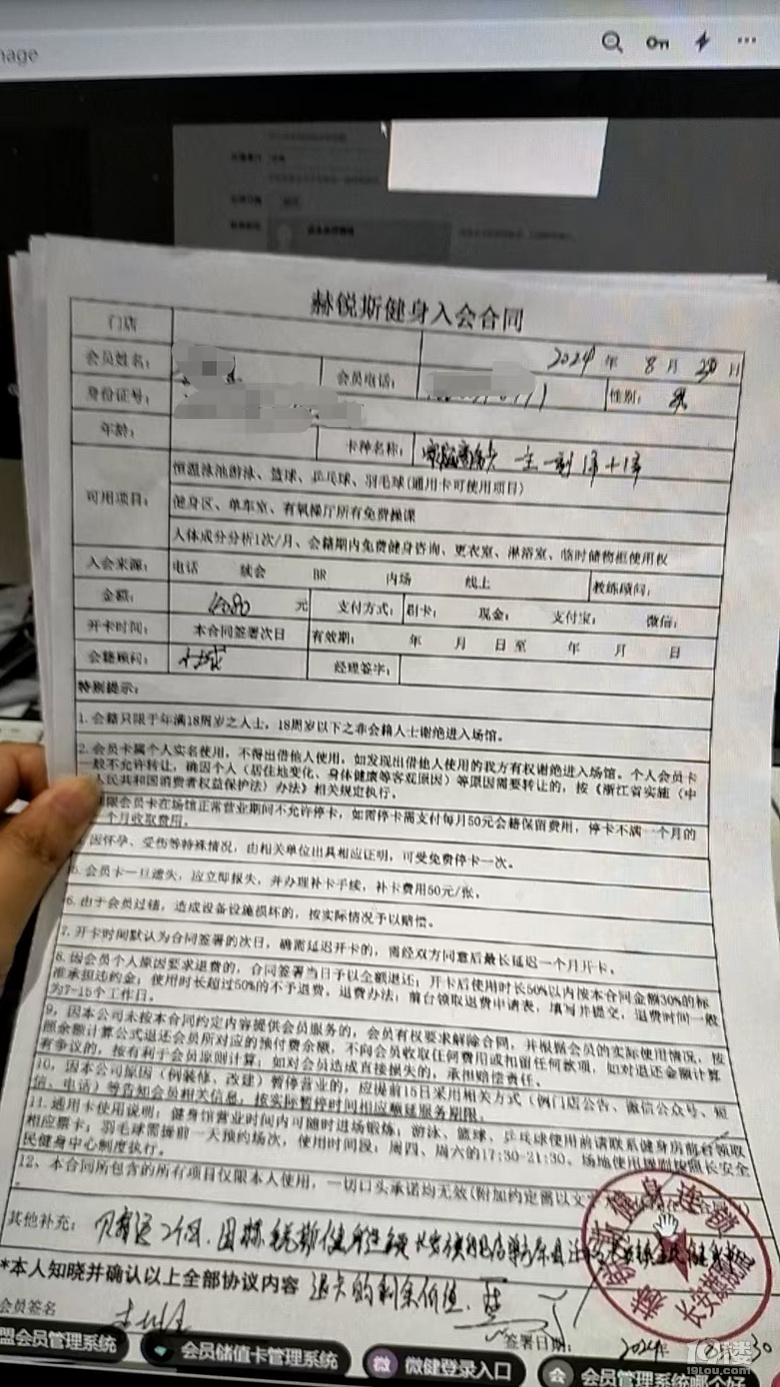 nage
赫锐斯健身入会合同
门店
2024 年 8 月 30 日
会员姓名：
会员电话：
身份证号：
性别：
年龄：
卡种名称：
可用项目：
恒温泳池游泳、篮球、乒乓球、羽毛球(通用卡可使用项目)
健身区、单车室、有氧操厅所有免费操课
人体成分分析1次/月、会籍期内免费健身咨询、更衣室、淋浴室、临时储物柜使用权
入会来源： 电话 续会 BR 内场 线上 教练顾问：
金额： 元 支付方式： 刷卡： 现金： 支付宝： 微信：
开卡时间： 本合同签署次日 有效期： 年 月 日至 年 月 日
会籍顾问： 经理签字：
特别提示：
1.会籍只限于年满18周岁之人士，18周岁以下之非会籍人士谢绝进入场馆。
2.会员卡属个人实名使用，不得出借他人使用，如发现出借他人使用的我方有权谢绝进入场馆。个人会员卡
一般不允许转让，确因个人（居住地变化、身体健康等客观原因）等原因需要转让的，按《浙江省实施〈中
人民共和国消费者权益保护法〉办法》相关规定执行。
限会员卡在场馆正常营业期间不允许停卡，如需停卡需支付每月50元会籍保留费用，停卡不满一个月的
一个月收取费用。
因怀孕、受伤等特殊情况，由相关单位出具相应证明，可受免费停卡一次。
5.会员卡一旦遗失，应立即报失，并办理补卡手续，补卡费用50元/张。
6.由于会员过错，造成设备设施损坏的，按实际情况予以赔偿。
7.开卡时间默认为合同签署的次日，确需延迟开卡的，需经双方同意后最长延迟一个月开卡。
8.因会员个人原因要求退费的，合同签署当日予以全额退还；开卡后使用时长50%以内按本合同金额30%的标
准承担违约金；使用时长超过50%的不予退费。退费办法：前台领取退费申请表，填写并提交，退费时间一般
为7-15个工作日。
9、因本公司未按本合同约定内容提供会员服务的，会员有权要求解除合同，并根据会员的实际使用情况，按
照余额计算公式退还会员所对应的预付费余额，不向会员收取任何费用或扣留任何款项，如对退还金额计算
有争议的，按有利于会员原则计算；如对会员造成直接损失的，承担赔偿责任。
10、因本公司原因（例装修、改建）暂停营业的，应提前15日采用相关方式（例门店公告、微信公众号、短
信、电话）等告知会员相关信息，按实际暂停时间相应顺延服务期限。
11.通用卡使用说明：健身馆营业时间内可随时进场锻炼；游泳、篮球、乒乓球使用前请联系健身房前台领取
相应票卡；羽毛球需提前一天预约场次，使用时间段：周四、周六的17:30-21:30。场地使用规则按照长安全
民健身中心制度执行。
12、本合同所包含的所有项目仅限本人使用，一切口头承诺均无效(附加约定需以文
其他补充：
*本人知晓并确认以上全部协议内容 退卡的剩余价值
会员签名
签署日期：
2024
盟会员管理系统
会员储值卡管理系统
微 微健登录入口
会 会员管理系统哪个好
19楼
19lou.com